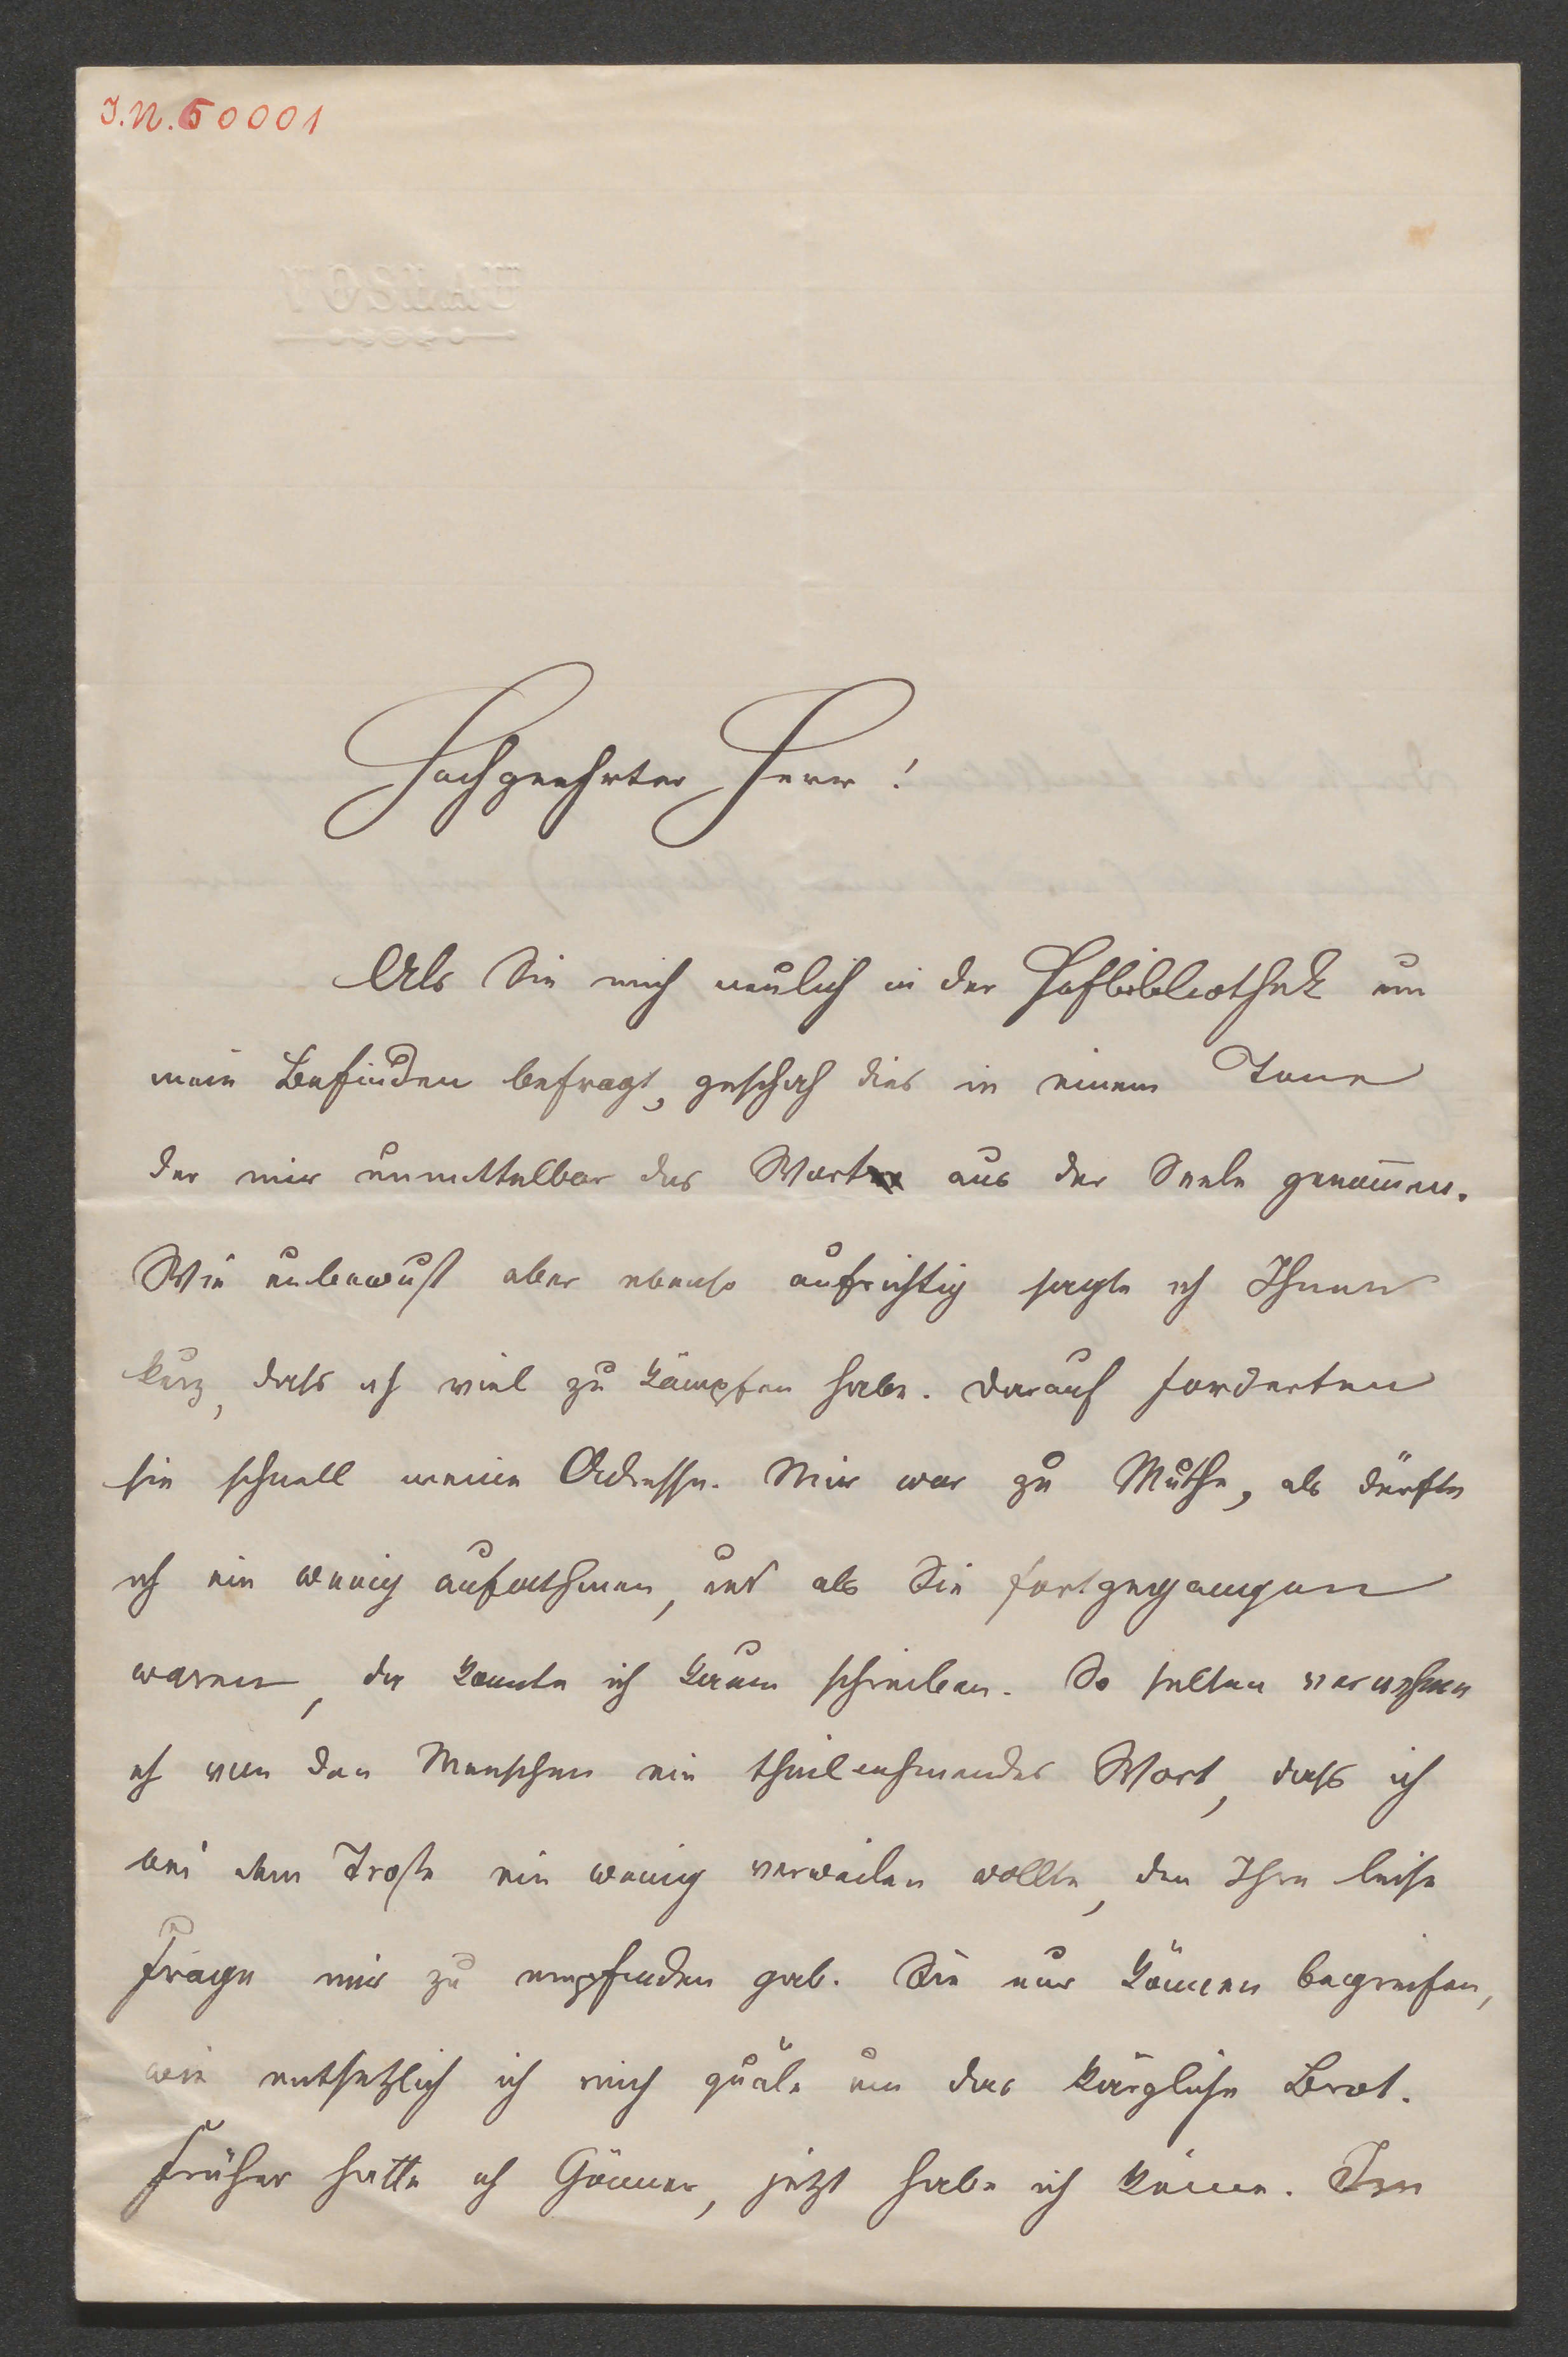 J.N.60001
VOSLAU
Hochgeehrter Herr!
Als Sie mich neulich in der Hofbibliothek um
mein Befinden befragt, geschah dies in einem Tone
der mir unmittelbar das Wort aus der Seele genom̄en.
Wie unbewußt aber ebenso aufrichtig sagte ich Ihnen
kurz, dass ich viel zu kämpfen habe. Darauf forderten
sie schnell meine Adresse. Mir war zu Muthe, als dürfte
ich ein wenig aufathmen, und als Sie fortgegangen
waren, da konnte ich kaum schreiben. So selten vernehme
ich von den Menschen ein theilnehmendes Wort, dass ich
bei dem Troste ein wenig verweilen wollte, den Ihre leise
Frage mir zu empfinden gab. Sie nur können begreifen,
wie entsetzlich ich mich quäle um das kärgliche Brot.
Früher hatte ich Gönner, jetzt habe ich keine. Im